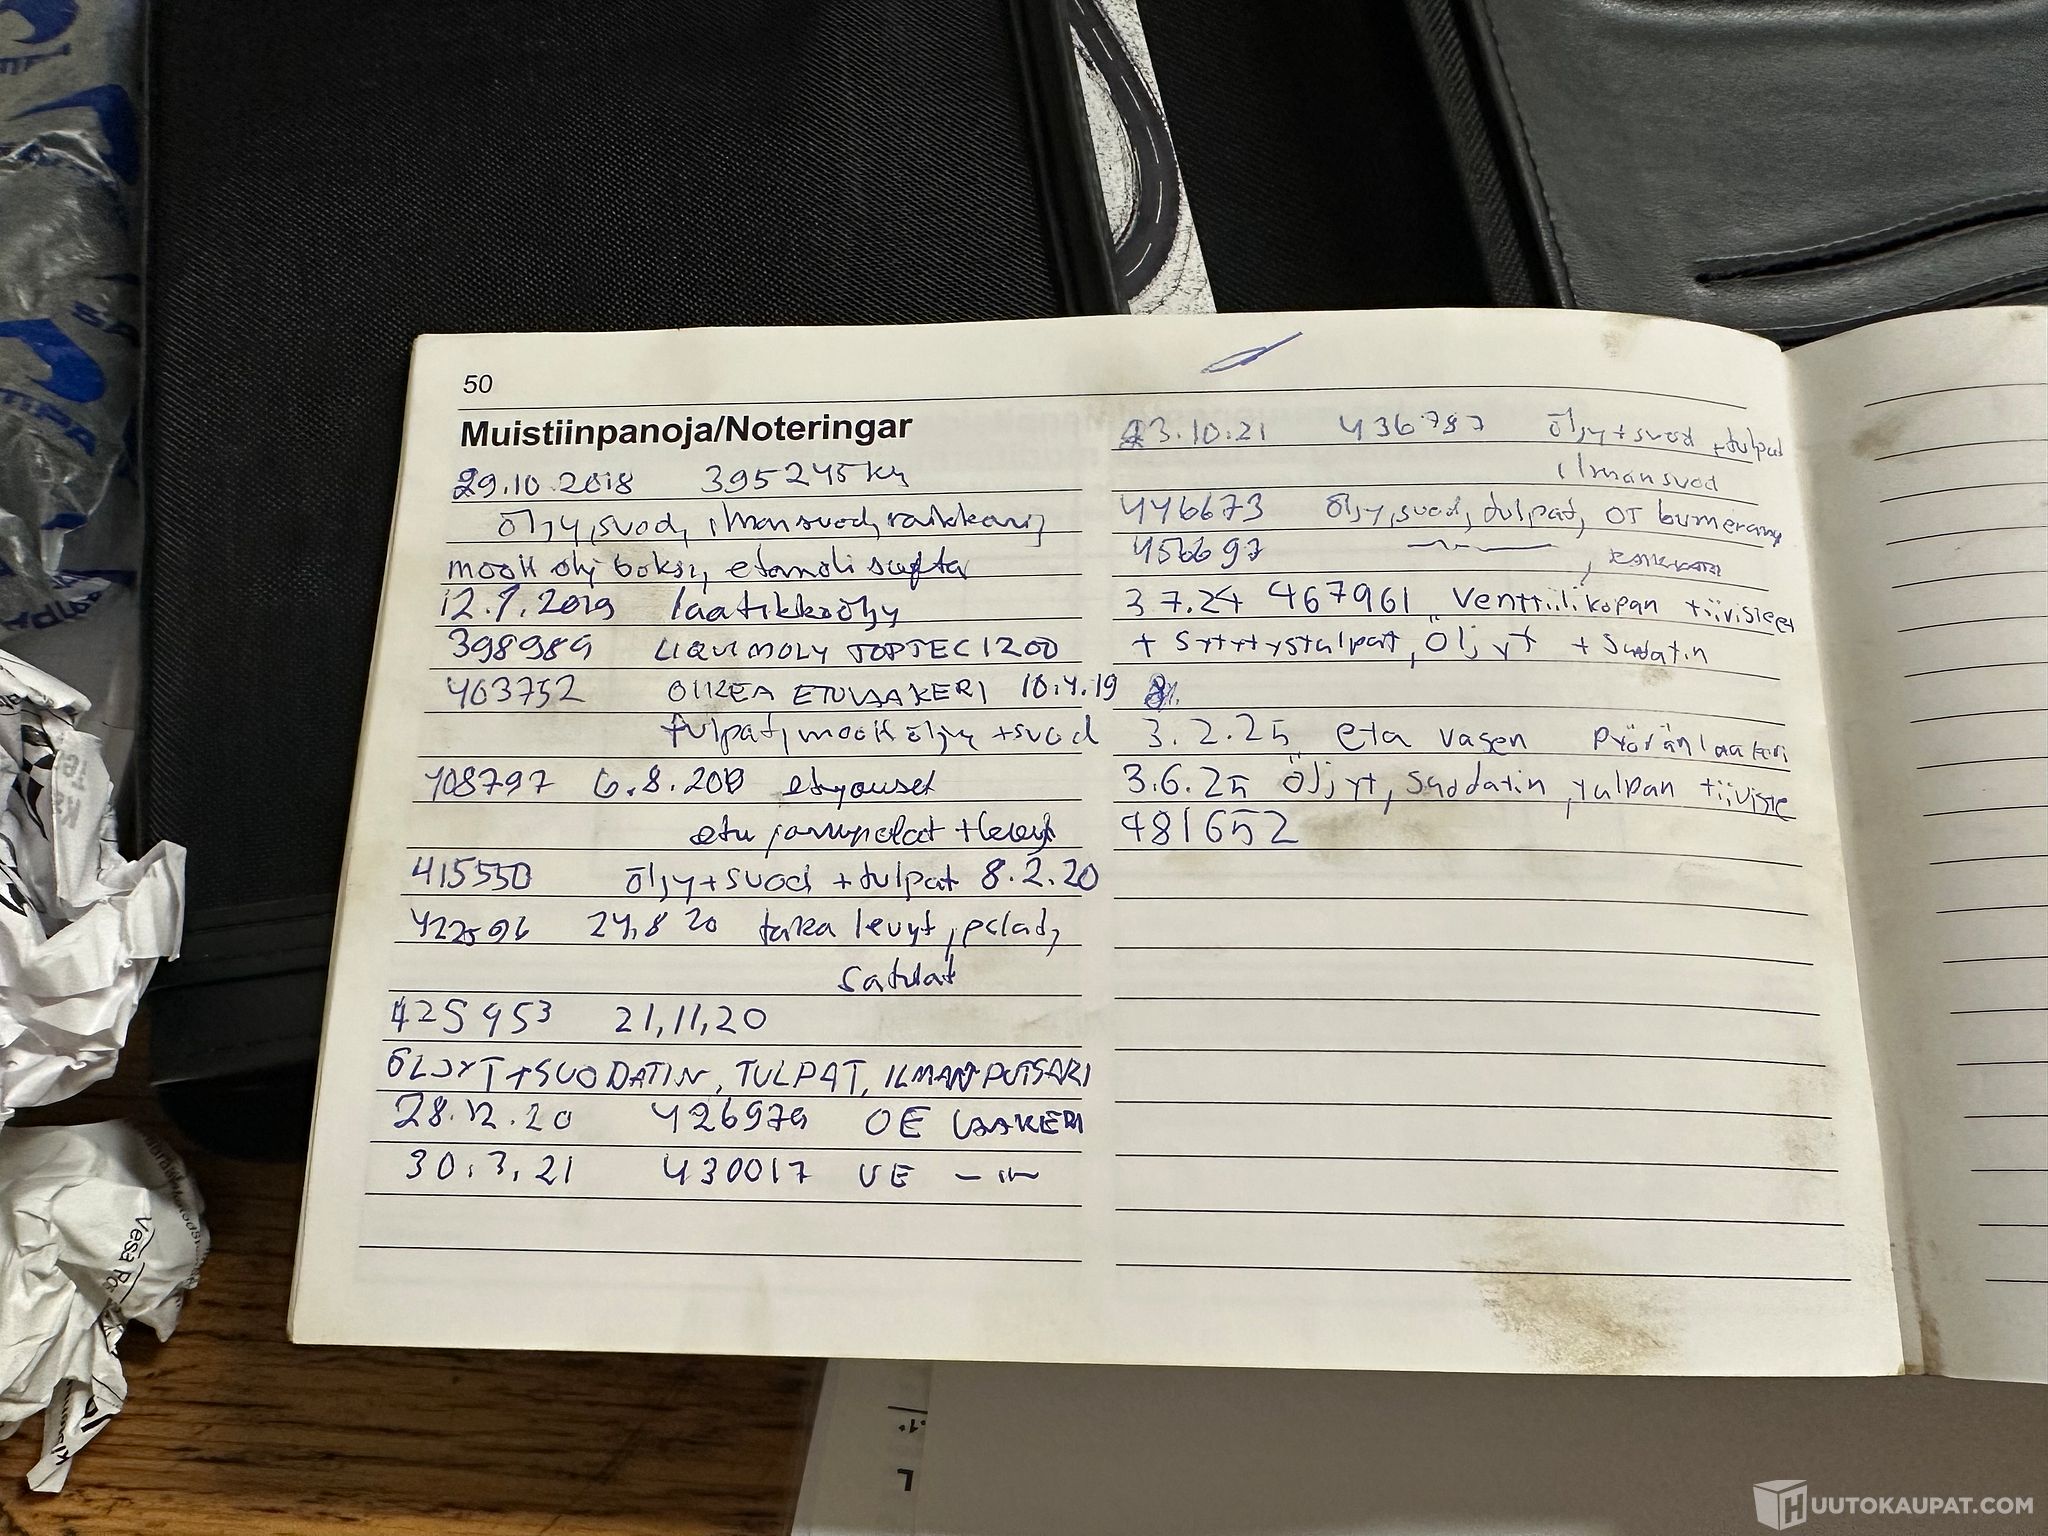 50
Muistiinpanoja/Noteringar
29.10.2018 395245 km
öljy, suod, ilmansuod, raikkari,
moott ohj boksi, etanoli
12.1.2019 laatikkoöljy
398989 LIQUI MOLY TOPTEC 1200
403752 OIKEA ETULAAKERI 10.4.19
tulpat, moott öljy + suod
408797 6.8.2019 etujouset
etu jarrupalat + levyt
415550 öljy + suod + tulpat 8.2.20
422596 24.8 20 taka levyt, palat,
Satulat
425953 21,11,20
ÖLJYT + SUODATIN, TULPAT, ILMANPUTSARI
28.12.20 426979 OE LAAKERI
30.3.21 430017 VE -"-
23.10.21 436787 öljy + suod + tulpat
ilmansuod
446673 öljy, suod, tulpat, OT bumerang
456697
3 7.24 467961 Venttiilikopan tiivisteet
+ Sytytystulpat, Öljyt + Suodatin
3.2.25 eta vasen Pyöränlaakeri
3.6.25 Öljyt, Suodatin, tulpan tiiviste
481652
UUTOKAUPAT.COM